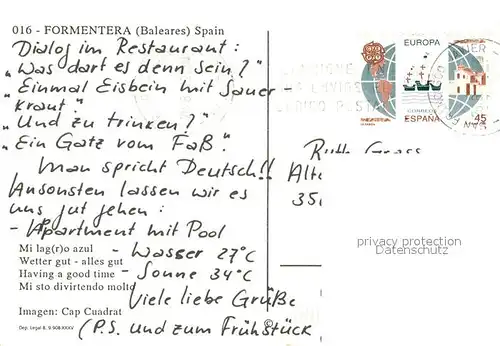 016 - FORMENTERA (Baleares) Spain
Dialog im Restaurant:
"Was darf es denn sein?"
"Einmal Eisbein mit Sauer-
kraut"
"Und zu trinken?"
"Ein Gatz vom Faß"
Man spricht Deutsch!!
Ansonsten lassen wir es
uns gut gehen:
- Apartment mit Pool
- Wasser 27°C
- Sonne 34°C
Viele liebe Grüße
(P.S. und zum Frühstück
Mi lag(r)o azul
Wetter gut - alles gut
Having a good time
Mi sto divirtendo molto
Imagen: Cap Cuadrat
Dep. Legal B. 9.908-XXXV
EUROPA
CORREOS
ESPAÑA
45
Alte
350
privacy protection
Datenschutz